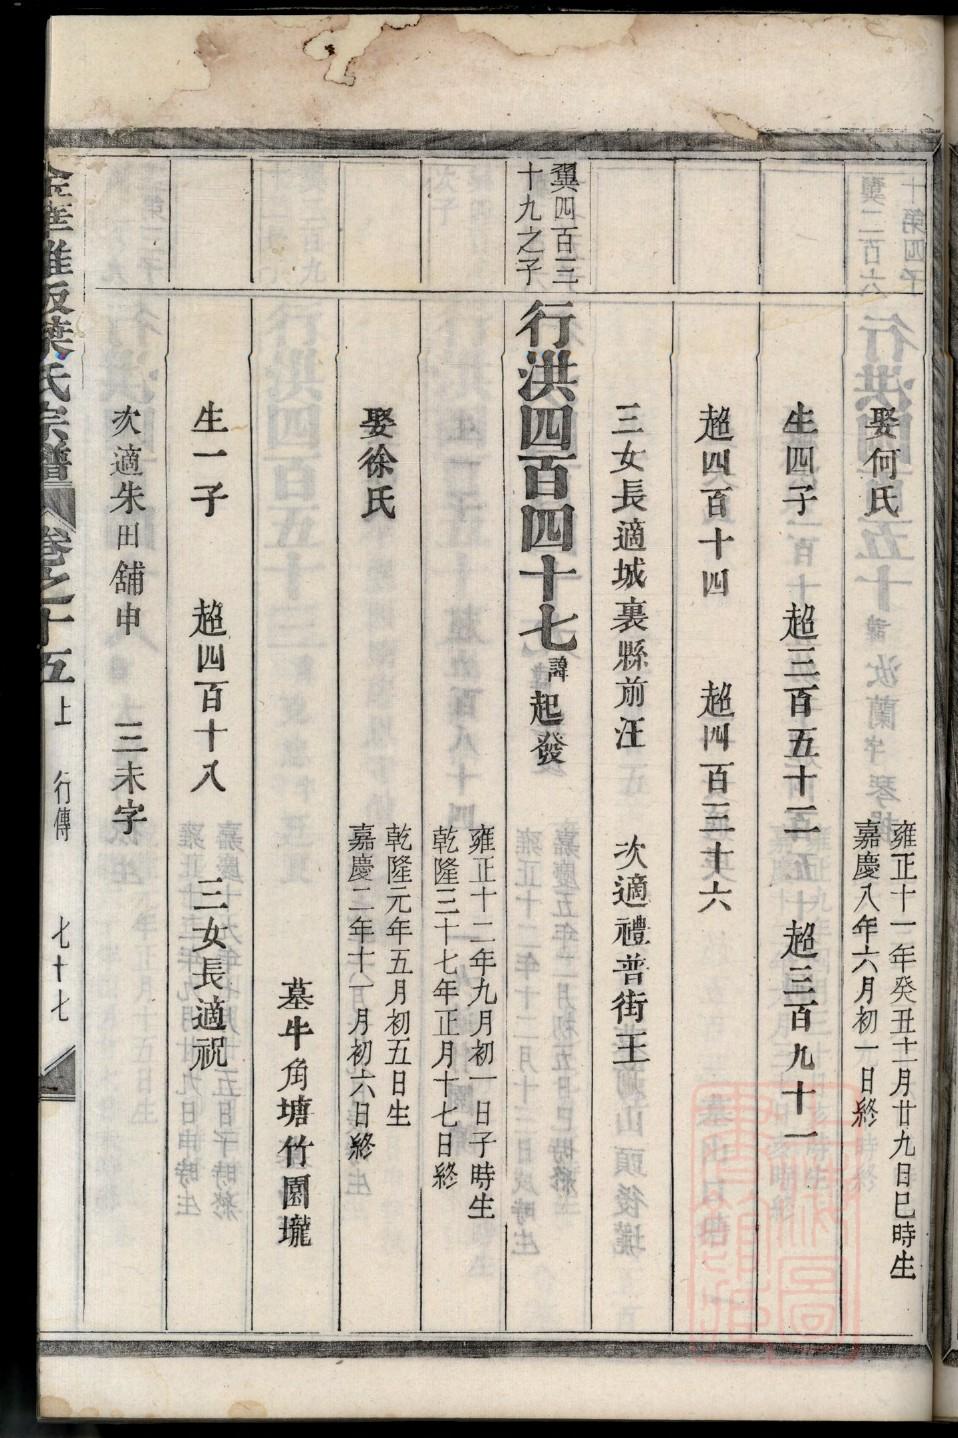 娶何氏
雍正十一年癸丑十一月廿九日巳時生
嘉慶八年六月初一日終
生四子　超三百五十二　超三百九十一
超四百十四　超四百三十六
三女長適城裏縣前汪　次適禮普街王
翼四百三
十九之子
行洪四百四十七諱起發
雍正十二年九月初一日子時生
乾隆三十七年正月十七日終
娶徐氏
乾隆元年五月初五日生
嘉慶二年十一月初六日終
墓牛角塘竹園壠
生一子　超四百十八　三女長適祝
次適朱田舖申　三未字
葉氏宗譜　卷之十五　上　行傳　七十七